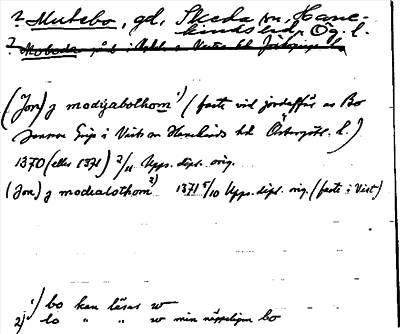 ? Mutebo, gd, Skeda sn, Hane-
kinds hd, Ög. l.
? Moboda
(Jon) j modyabolhom 1) (faste vid jordaffär av Bo
Jonsson Grip i Vist sn Hanekinds hd Östergötl. l.)
1370 (eller 1371) 2/11 Upps. dipl. orig.
(Jon) j modiabothom 2) 1371 5/10 Upps. dipl. orig. (faste i Vist)
1) bo kan läsas w
2) lo " " w men näppeligen bo